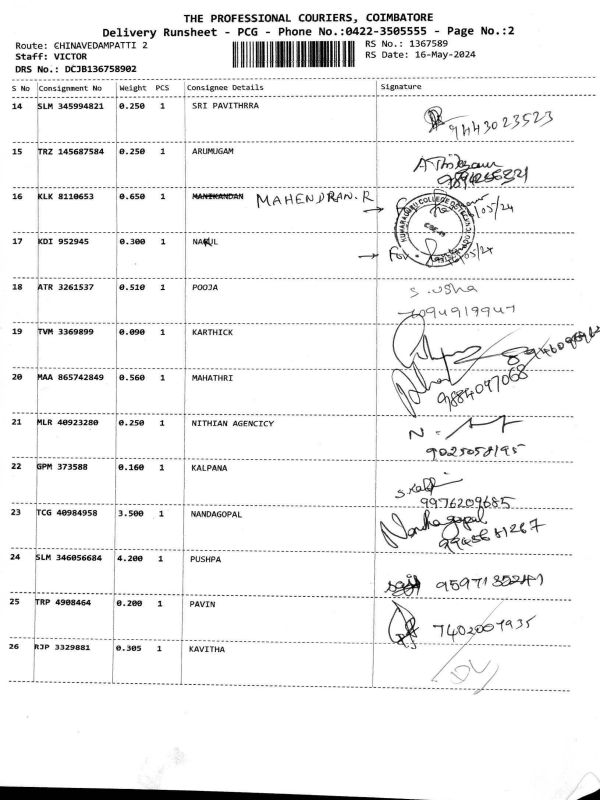 THE PROFESSIONAL COURIERS, COIMBATORE
Delivery Runsheet - PCG - Phone No.:0422-3505555 - Page No.:2
Route: CHINAVEDAMPATTI 2
RS No.: 1367589
Staff: VICTOR
RS Date: 16-May-2024
DRS No.: DCJB136758902
S No Consignment No Weight PCS Consignee Details Signature
14 SLM 345994821 0.250 1 SRI PAVITHRRA
9443023523
15 TRZ 145687584 0.250 1 ARUMUGAM
16 KLK 8110653 0.650 1 MANIKANDAN MAHENDRAN.R
17 KDI 952945 0.300 1 NAKUL
For
18 ATR 3261537 0.510 1 POOJA S. Usha
7094919947
19 TVM 3369899 0.090 1 KARTHICK
20 MAA 865742849 0.560 1 MAHATHRI
9884097068
21 MLR 40923280 0.250 1 NITHIAN AGENCICY
9025058195
22 GPM 373588 0.160 1 KALPANA
9976209685
23 TCG 40984958 3.500 1 NANDAGOPAL Nandhagopal
24 SLM 346056684 4.200 1 PUSHPA
9597135241
25 TRP 4908464 0.200 1 PAVIN
7402007935
26 RJP 3329881 0.305 1 KAVITHA
DL